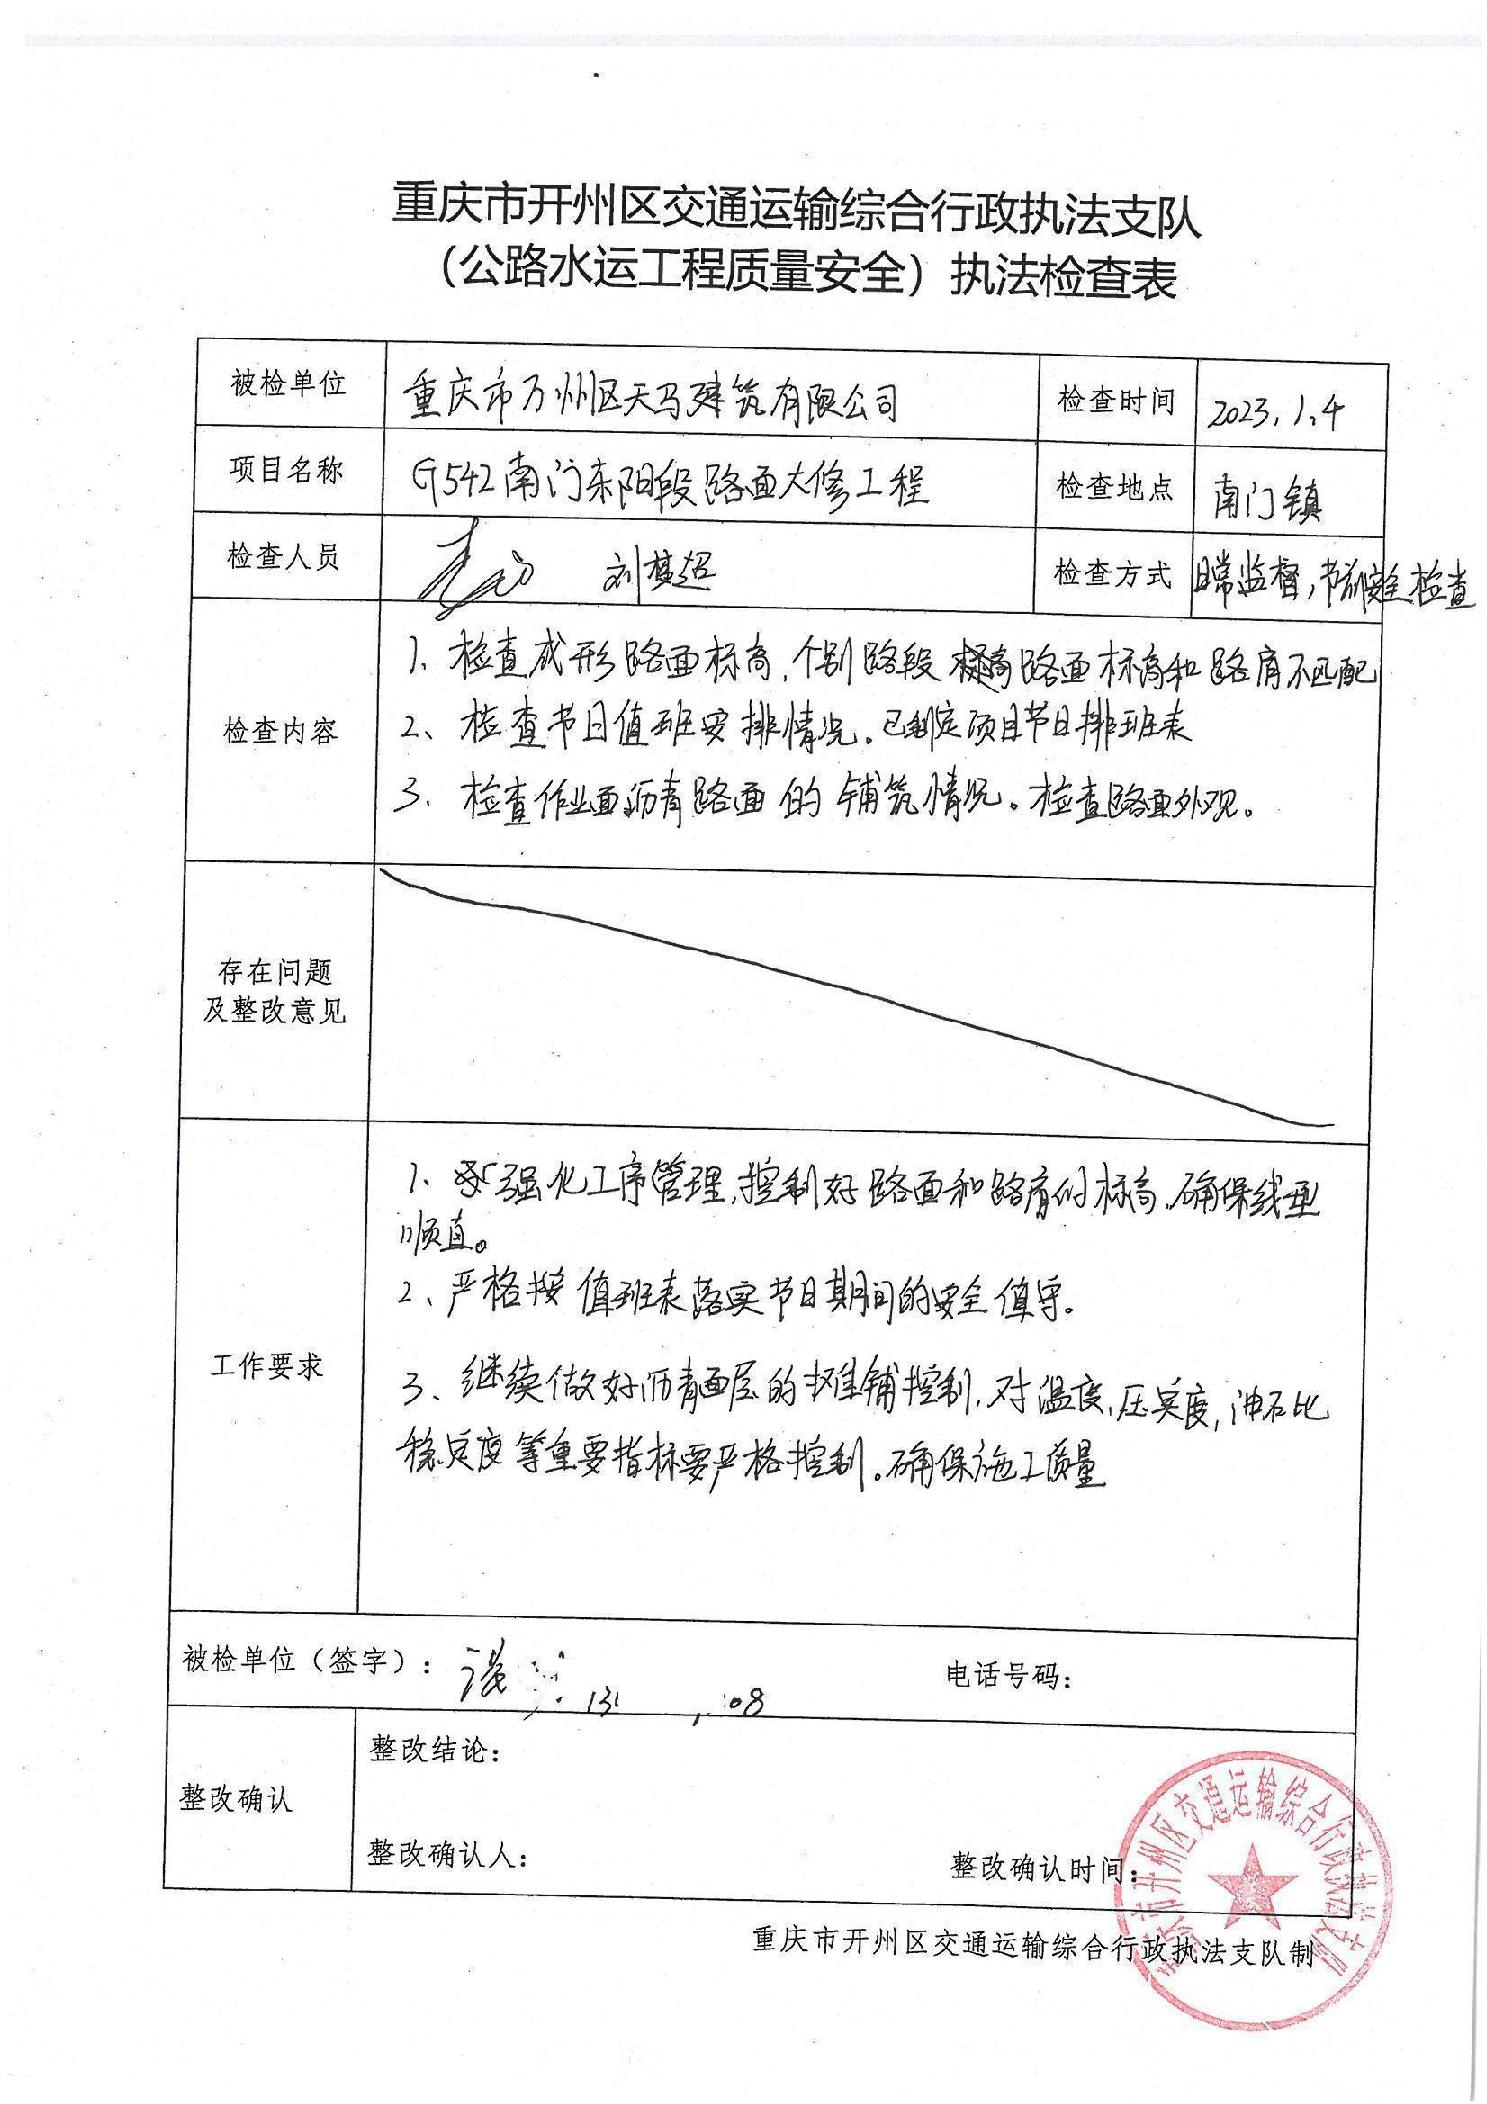 重庆市开州区交通运输综合行政执法支队
（公路水运工程质量安全）执法检查表
被检单位 重庆市万州区天马建筑有限公司 检查时间 2023.1.4
项目名称 G542南门东阳段路面大修工程 检查地点 南门镇
检查人员 检查方式 日常监督,节前安全检查
检查内容
1、检查成形路面标高,个别路段路面标高和路肩不匹配
2、检查节日值班安排情况。已制定项目节日排班表
3、检查作业面沥青路面的铺筑情况。检查路面外观。
存在问题
及整改意见
工作要求
1、强化工序管理,控制好路面和路肩的标高,确保线型
顺直。
2、严格按值班表落实节日期间的安全值守。
3、继续做好沥青面层的摊铺控制,对温度,压实度,油石比
稳定度等重要指标要严格控制。确保施工质量
被检单位（签字）: 131 08 电话号码:
整改确认
整改结论:
整改确认人: 整改确认时间:
重庆市开州区交通运输综合行政执法支队制
重庆市开州区交通运输综合行政执法支队